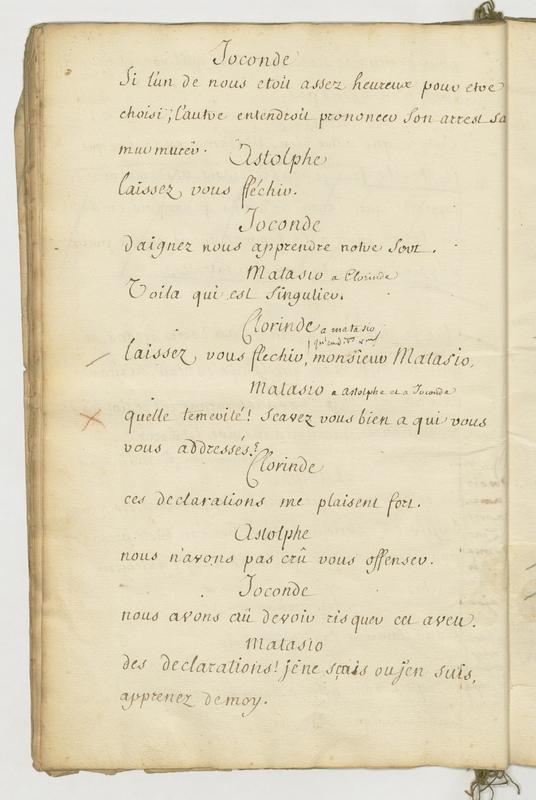 Joconde
Si l'un de nous etoit assez heureux pour etre
choisi; l'autre entendroit prononcer son arrest sa
murmurer.
Astolphe
laissez vous fléchir.
Joconde
daignez nous apprendre notre sort.
Matasio a Clorinde
Voila qui est singulier.
Clorinde a matasio
qu'en dites vous
laissez vous flechir, monsieur Matasio,
Matasio a astolphe et a Joconde
quelle temerité! Scavez vous bien a qui vous
vous addressés?
Clorinde
ces declarations me plaisent fort.
Astolphe
nous n'avons pas crû vous offenser.
Joconde
nous avons crû devoir risquer cet aveu.
Matasio
des declarations! je ne sçais ou j'en suis,
apprenez de moy.